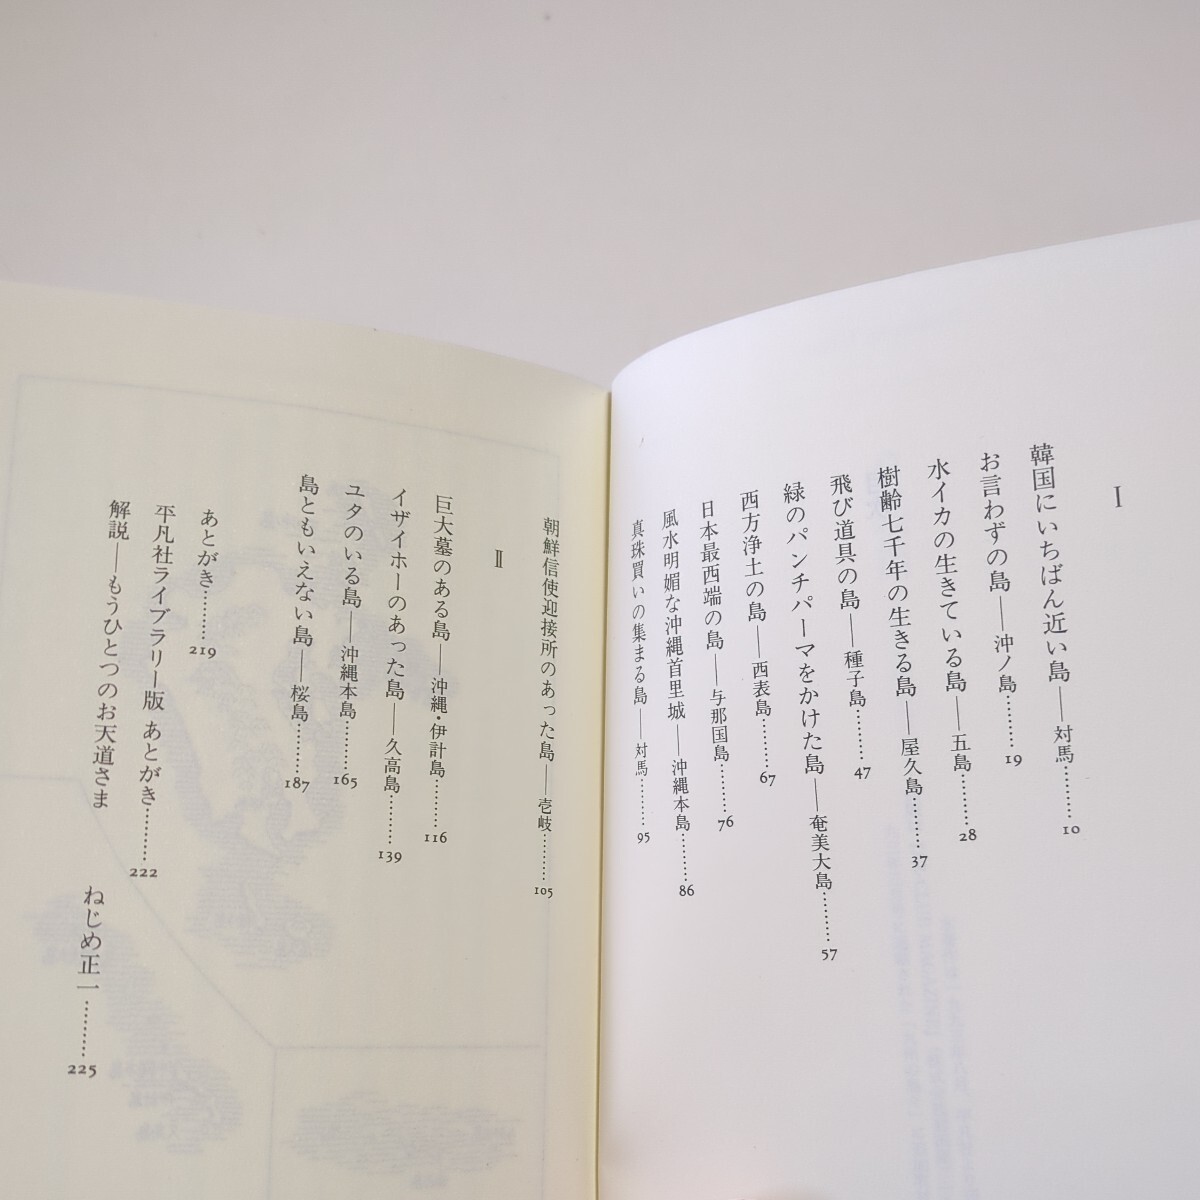 I
韓国にいちばん近い島——対馬………10
お言わずの島——沖ノ島………19
水イカの生きている島——五島………28
樹齢七千年の生きる島——屋久島………37
飛び道具の島——種子島………47
緑のパンチパーマをかけた島——奄美大島………57
西方浄土の島——西表島………67
日本最西端の島——与那国島………76
風水明媚な沖縄首里城——沖縄本島………86
真珠買いの集まる島——対馬………95
朝鮮信使迎接所のあった島——壱岐………105
II
巨大墓のある島——沖縄・伊計島………116
イザイホーのあった島——久高島………139
ユタのいる島——沖縄本島………165
島ともいえない島——桜島………187
あとがき………219
平凡社ライブラリー版 あとがき………222
解説——もうひとつのお天道さま ねじめ正一………225